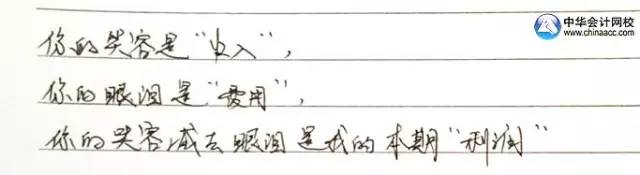 中华会计网校
www.chinaacc.com
你的笑容是“收入”，
你的眼泪是“费用”，
你的笑容减去眼泪是我的本期“利润”